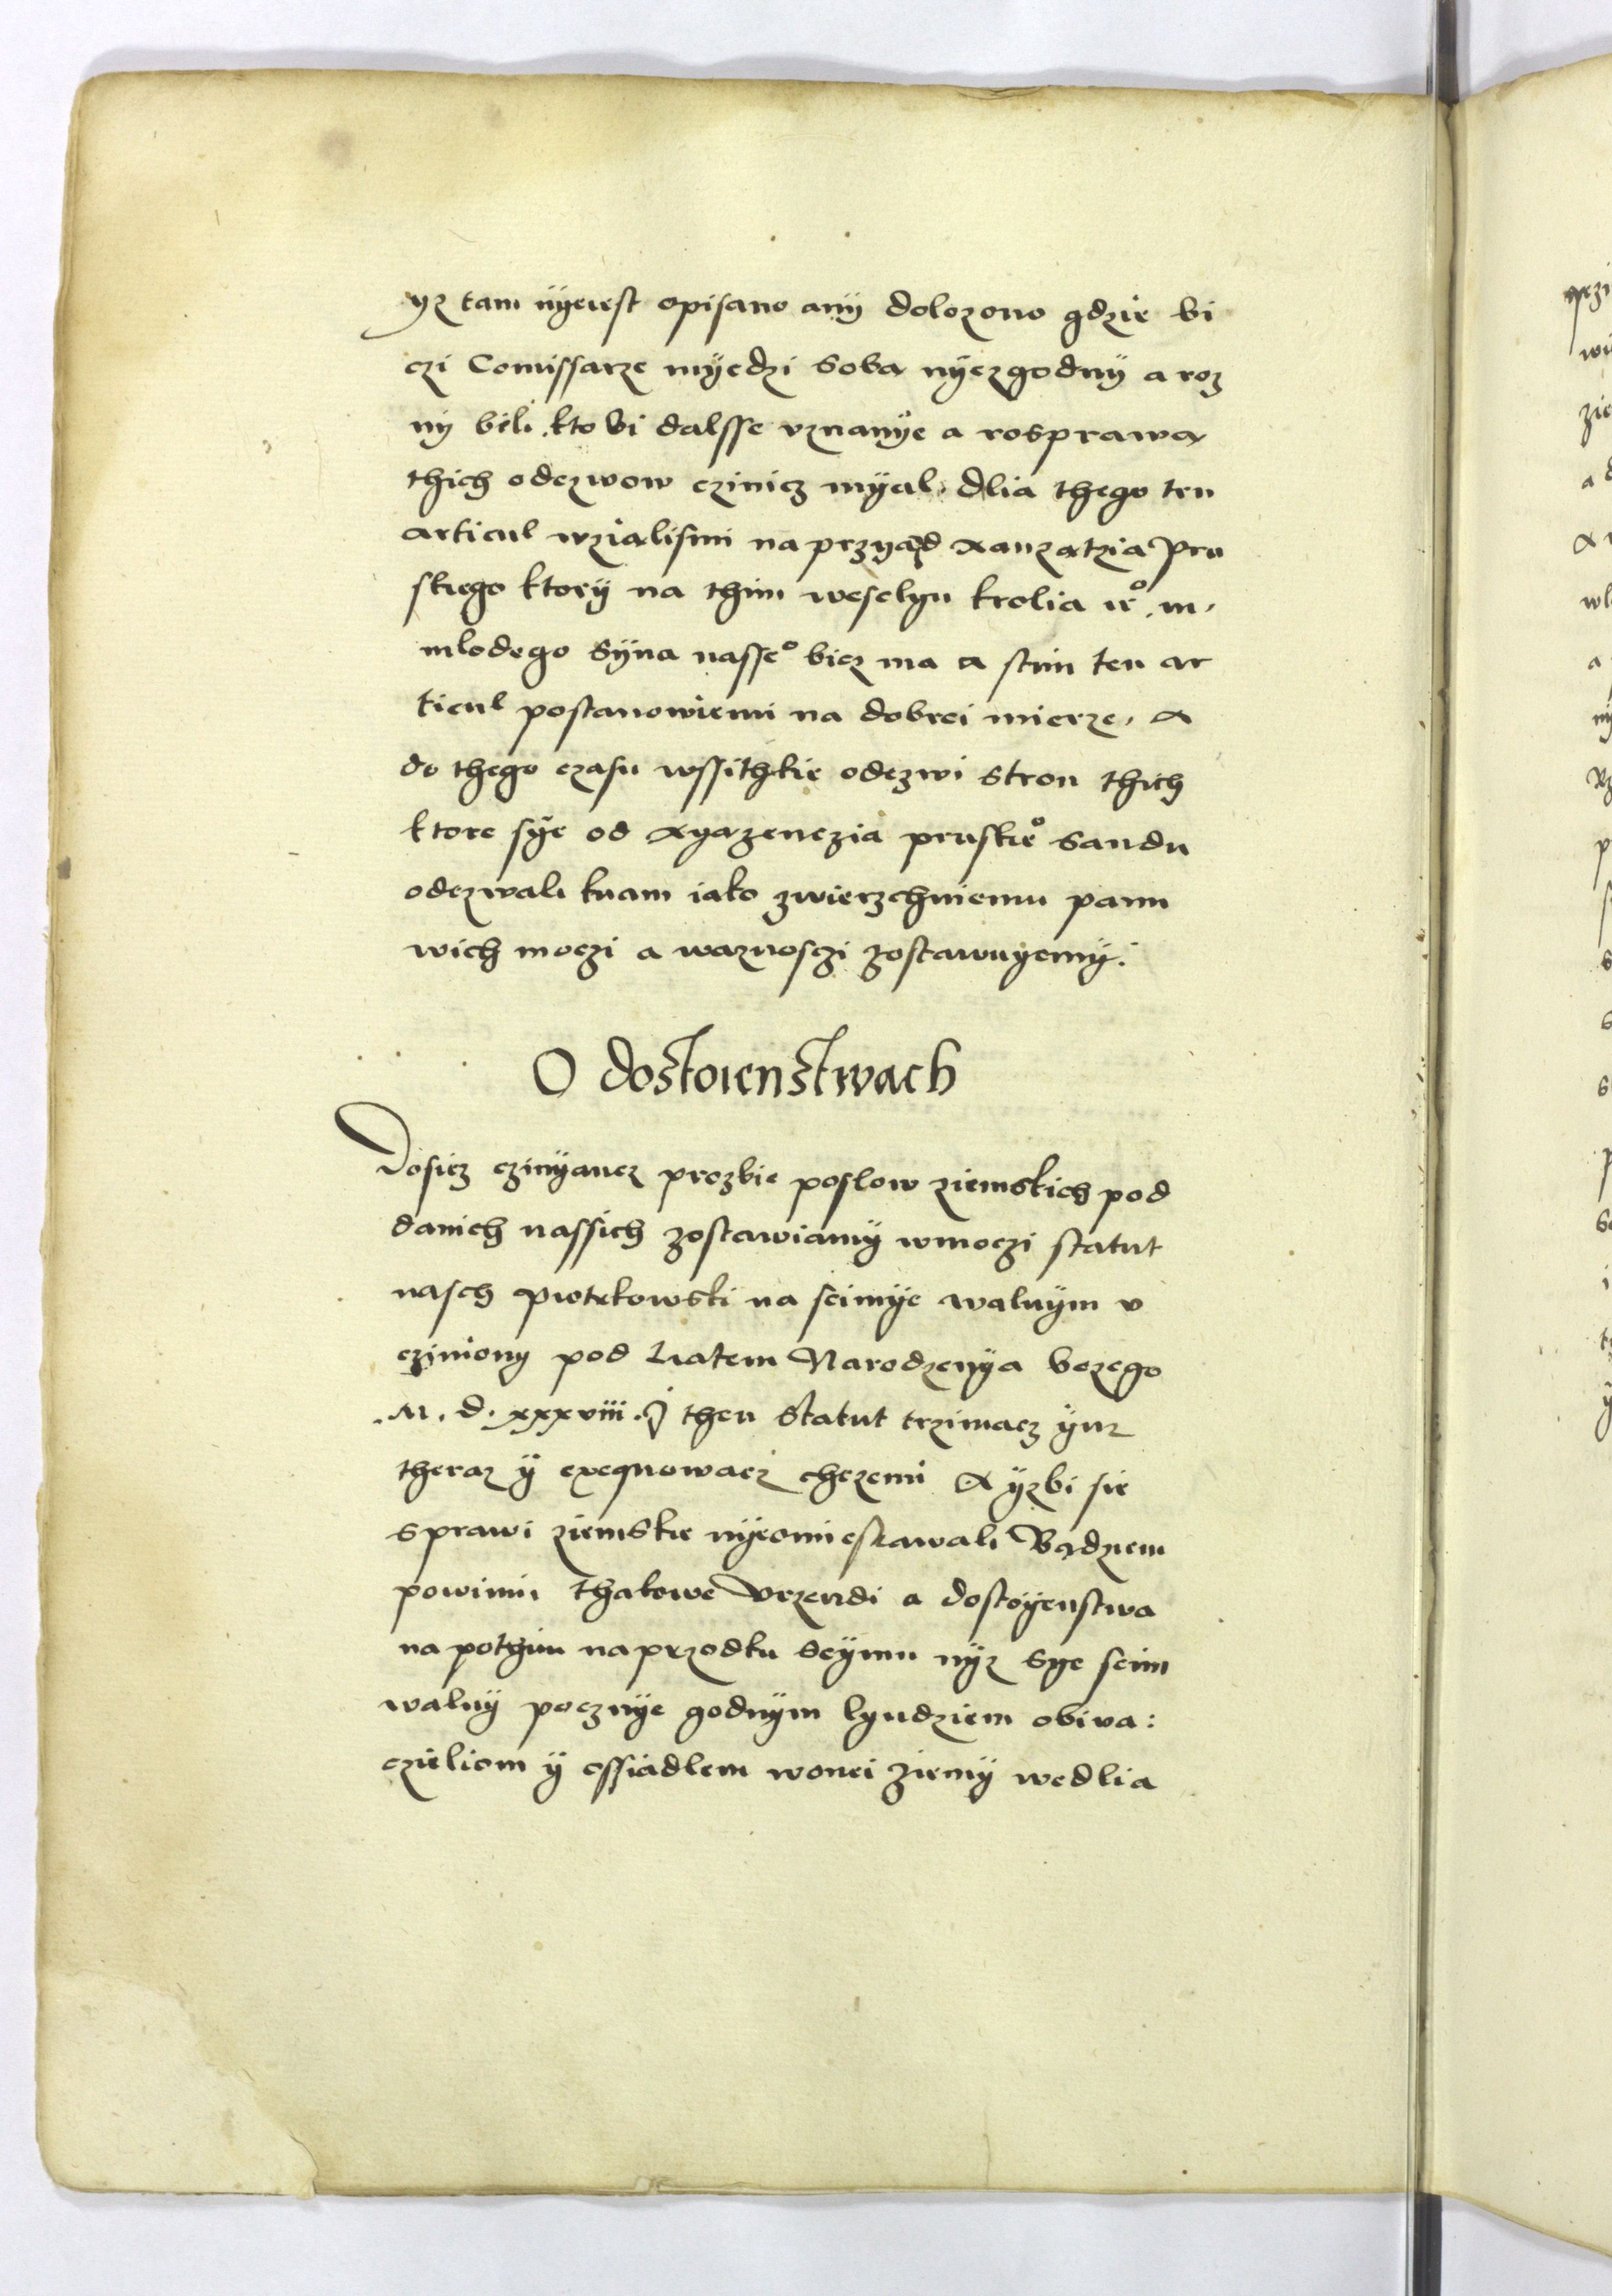 yz tam nÿeiest opisano anÿ dolozono gdzie bi
czi Comissarze mÿedzi soba nÿezgodnÿ a roz
nÿ bili kto bi dalsse vznanÿe a rosprawa
thich odezwow czinicz mÿal, dlia thego ten
articul wzialismi na przyazd xanzatzia Pru
skiego ktorÿ na thim weselyu krolia ieº. m.
mlodego Sÿna nasseº bicz ma a stim ten ar
ticul postanowiemi na dobrei mierze, A
do thego czasu wssithkie odezwi stron thich
ktore sÿe od xyazenczia pruskieº sandu
odezwali knam iako zwierzchniemu panu
wich moczi a waznosczi zostawuyemÿ.
O dostoienstwach
Dosicz czinÿancz prozbie poslow ziemskich pod
danich nassich zostawiamÿ wmoczi statut
nasch piotrkowski na seimÿe walnÿm v
cziniony pod Liatem Narodzenÿa bozego
.M. d. xxxviii. J then Statut trzimacz ÿuz
theraz ÿ exequowacz chczemi A ÿzbi sie
sprawi ziemskie nÿeomieskawali Bądziem
powinni thakowe Vrzendi a dostoÿenstwa
na pothim naprzodku Seÿmu nÿz sye seim
walnÿ pocznÿe godnÿm lyudziem obiva:
czieliom ÿ ossiadlem wonei ziemÿ wedlia